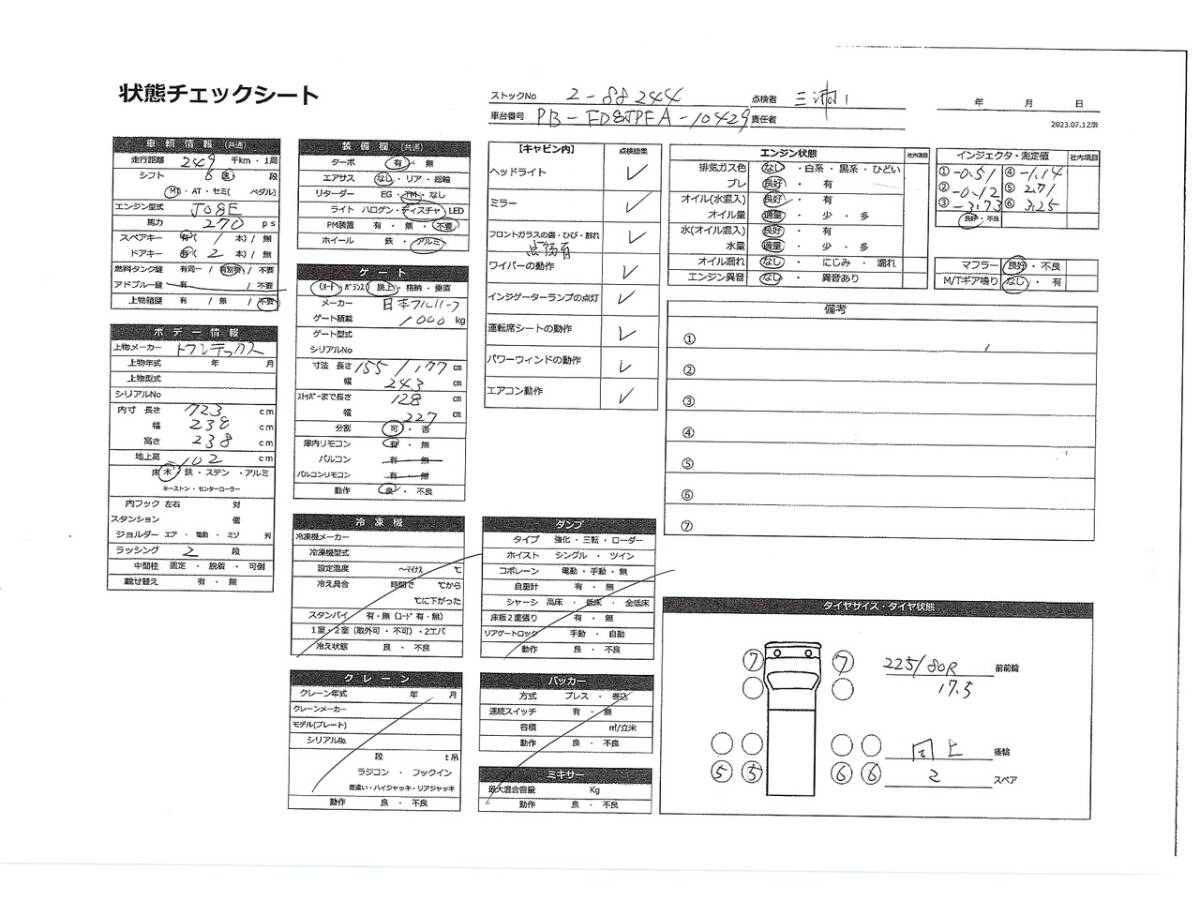 状態チェックシート
ストックNo 2-88244 点検者 三浦 年 月 日
車台番号 PB-FD8JPFA-10429 責任者
2023.07.12版
車輌情報 (共通)
走行距離 249 千km・1周
シフト 6 速 段
MT・AT・セミ( ペダル)
エンジン型式 J08E
馬力 270 ps
スペアキー 有( 1 本) / 無
ドアキー 有( 2 本) / 無
燃料タンク鍵 有同一 / 有別物 / 不要
アドブルー鍵 有 / 不要
上物箱鍵 有 / 無 / 不要
ボデー情報
上物メーカー トランテックス
上物年式 年 月
上物型式
シリアルNo
内寸 長さ 723 cm
幅 238 cm
高さ 238 cm
地上高 102 cm
床 木・鉄・ステン・アルミ
キーストン・センターローラー
内フック 左右 対
スタンション 個
ジョルダー エア・電動・ミゾ 列
ラッシング 2 段
中間柱 固定・脱着・可倒
載せ替え 有・無
装備欄 (共通)
ターボ 有・無
エアサス なし・リア・総輪
リターダー EG・TM・なし
ライト ハロゲン・ディスチャ・LED
PM装置 有・無・不要
ホイール 鉄・アルミ
ゲート
メーカー 日本フルハーフ
ゲート積載 1000 kg
ゲート型式
シリアルNo
寸法 長さ 155/177 cm
幅 243 cm
ストッパーまで長さ 128 cm
幅 227 cm
分割 可・否
庫内リモコン 有・無
バルコン 有・無
バルコンリモコン 有・無
動作 良・不良
冷凍機
冷凍機メーカー
冷凍機型式
設定温度 ～マイナス ℃
冷え具合 時間で ℃から
℃に下がった
スタンバイ 有・無 (コード 有・無)
1室・2室 (取外可・不可)・2エバ
冷え状態 良・不良
クレーン
クレーン年式 年 月
クレーンメーカー
モデル(プレート)
シリアルNo.
段 t吊
ラジコン・フックイン
差違い・ハイジャッキ・リアジャッキ
動作 良・不良
【キャビン内】 点検結果
ヘッドライト ✓
ミラー ✓
フロントガラスの傷・ひび・割れ ✓
点傷有
ワイパーの動作 ✓
インジゲーターランプの点灯 ✓
運転席シートの動作 ✓
パワーウィンドの動作 ✓
エアコン動作 ✓
ダンプ
タイプ 強化・三転・ローダー
ホイスト シングル・ツイン
コボレーン 電動・手動・無
自重計 有・無
シャーシ 高床・低床・全低床
床板2重張り 有・無
リアゲートロック 手動・自動
動作 良・不良
パッカー
方式 プレス・巻込
連続スイッチ 有・無
容積 ㎥/立米
動作 良・不良
ミキサー
最大混合容量 Kg
動作 良・不良
エンジン状態 社内項目
排気ガス色 なし・白系・黒系・ひどい
ブレ 良好・有
オイル(水混入) 良好・有
オイル量 適量・少・多
水(オイル混入) 良好・有
水量 適量・少・多
オイル漏れ なし・にじみ・漏れ
エンジン異音 なし・異音あり
インジェクタ・測定値 社内項目
① -0.51 ④ -1.14
② -0.12 ⑤ 2.71
③ -3.73 ⑥ 3.25
良好・不良
マフラー 良好・不良
M/Tギア鳴り なし・有
備考
①
②
③
④
⑤
⑥
⑦
タイヤサイズ・タイヤ状態
7 7 225/80R 前前輪
17.5
同上 後輪
5 5 6 6 2 スペア